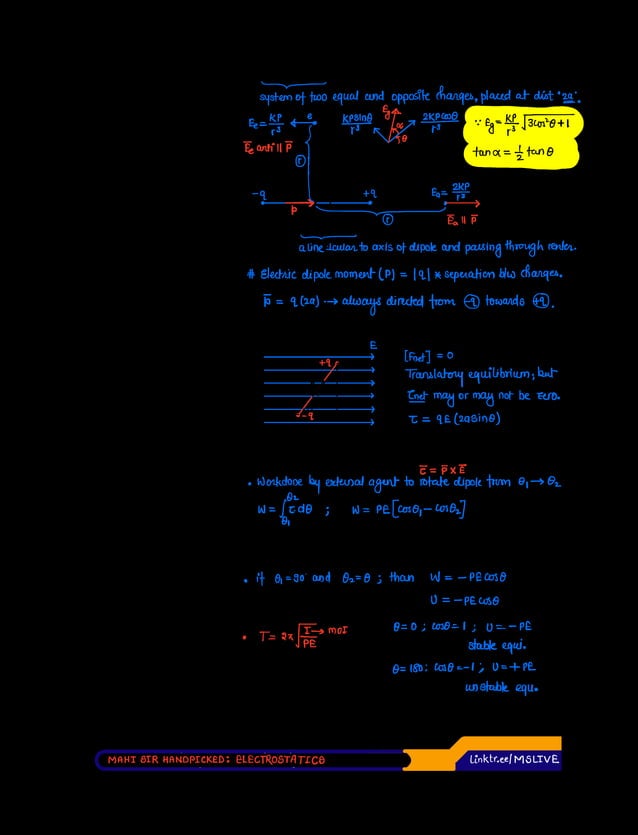 system of two equal and opposite charges, placed at dist '2a'.
Ee = KP/r³ e KPsinθ/r³ Eg α θ 2KPcosθ/r³ ∵ Eg = KP/r³ √3cos²θ+1
Ee anti || P tanα = 1/2 tanθ
r
-q P +q Ea = 2KP/r³
r Ea || P
a line ⊥cular to axis of dipole and passing through center.
# Electric dipole moment (P) = |q| * seperation b/w charges.
P = q(2a) → always directed from -q towards +q.
E
+q [Fnet] = 0
Translatory equilibrium, but
τnet may or may not be zero.
-q τ = qE(2asinθ)
τ = P x E
• Workdone by external agent to rotate dipole from θ₁→θ₂
W = ∫θ₁θ₂ τdθ ; W = PE[cosθ₁ - cosθ₂]
• if θ₁=90° and θ₂=θ ; than W = -PEcosθ
U = -PEcosθ
• T = 2π√I/PE → moI θ=0 ; cosθ=1 ; U=-PE
stable equi.
θ=180: cosθ=-1 ; U=+PE
unstable equ.
MAHI SIR HANDPICKED: ELECTROSTATICS Linktr.ee/MSLIVE